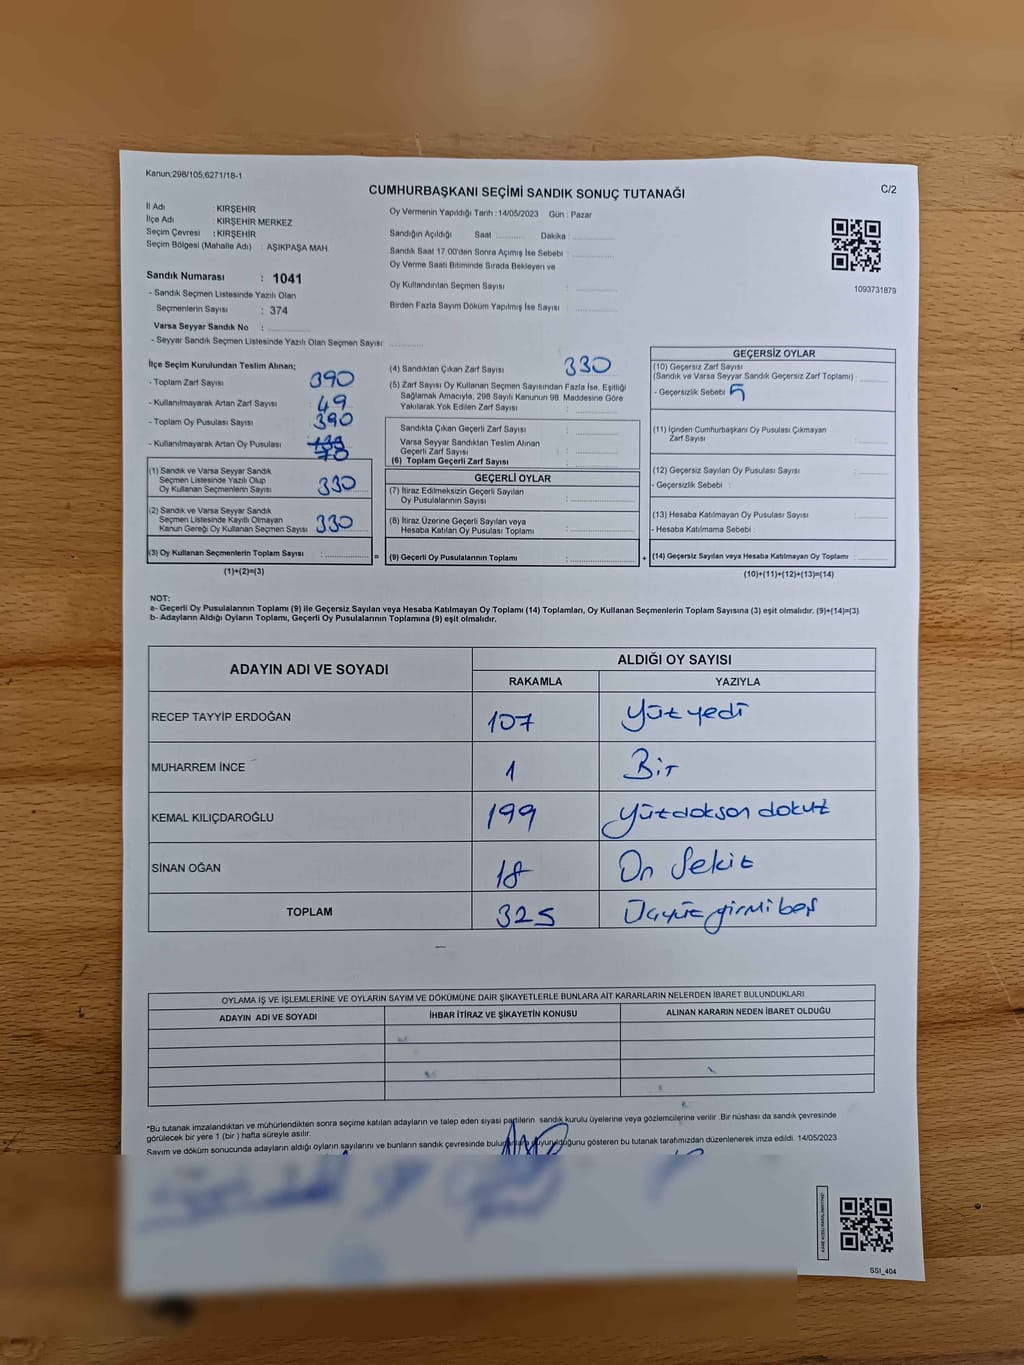 Kanun;298/105,6271/18-1
CUMHURBAŞKANI SEÇİMİ SANDIK SONUÇ TUTANAĞI
C/2
İl Adı : KIRŞEHİR
İlçe Adı : KIRŞEHİR MERKEZ
Seçim Çevresi : KIRŞEHİR
Seçim Bölgesi (Mahalle Adı) : AŞIKPAŞA MAH.
Sandık Numarası : 1041
- Sandık Seçmen Listesinde Yazılı Olan
Seçmenlerin Sayısı : 374
Varsa Seyyar Sandık No :
- Seyyar Sandık Seçmen Listesinde Yazılı Olan Seçmen Sayısı:
Oy Vermenin Yapıldığı Tarih :14/05/2023 Gün : Pazar
Sandığın Açıldığı Saat Dakika :
Sandık Saat 17.00'den Sonra Açımış İse Sebebi :
Oy Verme Saati Bitiminde Sırada Bekleyen ve
Oy Kullandırılan Seçmen Sayısı :
Birden Fazla Sayım Döküm Yapılmış İse Sayısı :
1093731879
İlçe Seçim Kurulundan Teslim Alınan;
- Toplam Zarf Sayısı 390
- Kullanılmayarak Artan Zarf Sayısı : 49
- Toplam Oy Pusulası Sayısı 390
- Kullanılmayarak Artan Oy Pusulası 70
(1) Sandık ve Varsa Seyyar Sandık
Seçmen Listesinde Yazılı Olup
Oy Kullanan Seçmenlerin Sayısı 330
(2) Sandık ve Varsa Seyyar Sandık
Seçmen Listesinde Kayıtlı Olmayan
Kanun Gereği Oy Kullanan Seçmen Sayısı 330
(3) Oy Kullanan Seçmenlerin Toplam Sayısı : =
(1)+(2)=(3)
(4) Sandıktan Çıkan Zarf Sayısı 330
(5) Zarf Sayısı Oy Kullanan Seçmen Sayısından Fazla İse, Eşitliği
Sağlamak Amacıyla, 298 Sayılı Kanunun 98. Maddesine Göre
Yakılarak Yok Edilen Zarf Sayısı :
Sandıkta Çıkan Geçerli Zarf Sayısı :
Varsa Seyyar Sandıktan Teslim Alınan
Geçerli Zarf Sayısı :
(6) Toplam Geçerli Zarf Sayısı :
GEÇERLİ OYLAR
(7) İtiraz Edilmeksizin Geçerli Sayılan
Oy Pusulalarının Sayısı :
(8) İtiraz Üzerine Geçerli Sayılan veya
Hesaba Katılan Oy Pusulası Toplamı :
(9) Geçerli Oy Pusulalarının Toplamı : +
GEÇERSİZ OYLAR
(10) Geçersiz Zarf Sayısı
(Sandık ve Varsa Seyyar Sandık Geçersiz Zarf Toplamı) :
- Geçersizlik Sebebi 5
(11) İçinden Cumhurbaşkanı Oy Pusulası Çıkmayan
Zarf Sayısı :
(12) Geçersiz Sayılan Oy Pusulası Sayısı :
- Geçersizlik Sebebi :
(13) Hesaba Katılmayan Oy Pusulası Sayısı :
- Hesaba Katılmama Sebebi :
(14) Geçersiz Sayılan veya Hesaba Katılmayan Oy Toplamı :
(10)+(11)+(12)+(13)=(14)
NOT:
a- Geçerli Oy Pusulalarının Toplamı (9) ile Geçersiz Sayılan veya Hesaba Katılmayan Oy Toplamı (14) Toplamları, Oy Kullanan Seçmenlerin Toplam Sayısına (3) eşit olmalıdır. (9)+(14)=(3)
b- Adayların Aldığı Oyların Toplamı, Geçerli Oy Pusulalarının Toplamına (9) eşit olmalıdır.
ADAYIN ADI VE SOYADI ALDIĞI OY SAYISI
RAKAMLA YAZIYLA
RECEP TAYYİP ERDOĞAN 107 Yüz yedi
MUHARREM İNCE 1 Bir
KEMAL KILIÇDAROĞLU 199 yüzdokson dokuz
SİNAN OĞAN 18 On Sekiz
TOPLAM 325 Üçyüz yirmi beş
OYLAMA İŞ VE İŞLEMLERİNE VE OYLARIN SAYIM VE DÖKÜMÜNE DAİR ŞİKAYETLERLE BUNLARA AİT KARARLARIN NELERDEN İBARET BULUNDUKLARI
ADAYIN ADI VE SOYADI İHBAR İTİRAZ VE ŞİKAYETİN KONUSU ALINAN KARARIN NEDEN İBARET OLDUĞU
*Bu tutanak imzalandıktan ve mühürlendikten sonra seçime katılan adayların ve talep eden siyasi partilerin sandık kurulu üyelerine veya gözlemcilerine verilir .Bir nüshası da sandık çevresinde
görülecek bir yere 1 (bir ) hafta süreyle asılır.
Sayım ve döküm sonucunda adayların aldığı oyların sayılarını ve bunların sandık çevresinde duyurulduğunu gösteren bu tutanak tarafımızdan düzenlenerek imza edildi. 14/05/2023
SSI_404